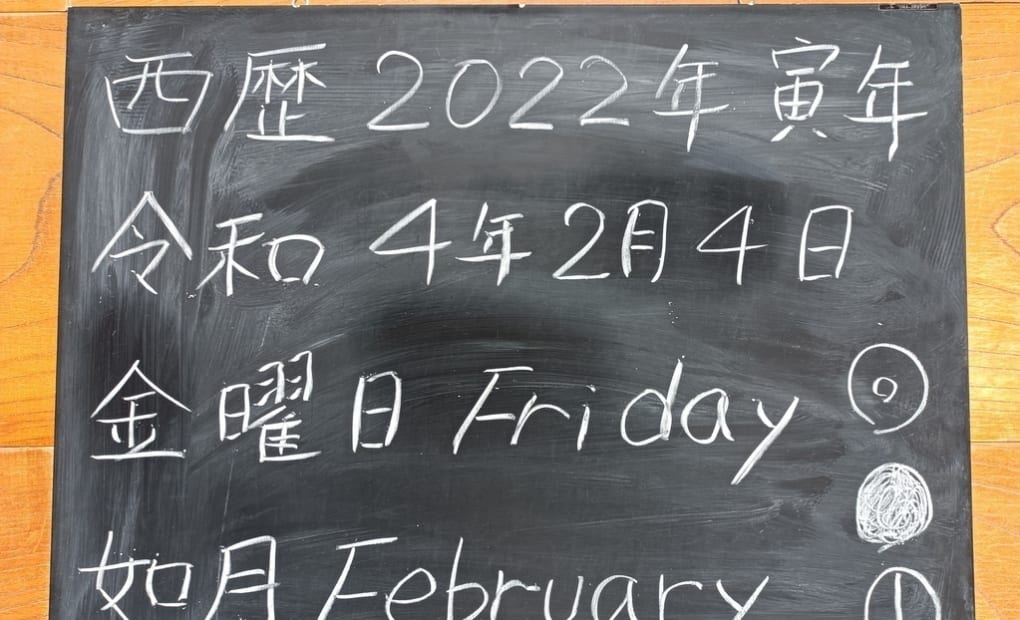 西歴2022年寅年
令和4年2月4日
金曜日Friday
如月February